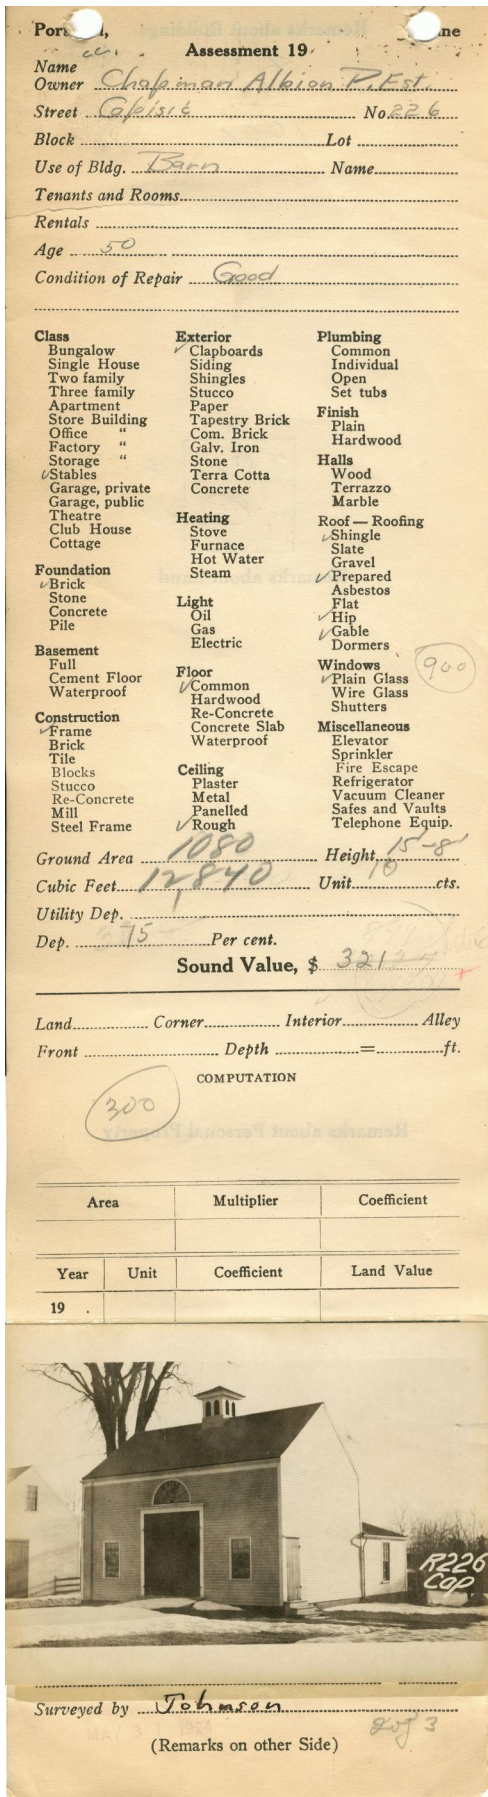 Assessment 19
Name
Owner Chapman Albion P. Est.
Street Capisic No 226
Block Lot
Use of Bldg. Barn Name
Tenants and Rooms
Rentals
Age 50
Condition of Repair Good
Class
Bungalow
Single House
Two family
Three family
Apartment
Store Building
Office "
Factory "
Storage "
✓Stables
Garage, private
Garage, public
Theatre
Club House
Cottage
Foundation
✓Brick
Stone
Concrete
Pile
Basement
Full
Cement Floor
Waterproof
Construction
✓Frame
Brick
Tile
Blocks
Stucco
Re-Concrete
Mill
Steel Frame
Exterior
✓Clapboards
Siding
Shingles
Stucco
Paper
Tapestry Brick
Com. Brick
Galv. Iron
Stone
Terra Cotta
Concrete
Heating
Stove
Furnace
Hot Water
Steam
Light
Oil
Gas
Electric
Floor
✓Common
Hardwood
Re-Concrete
Concrete Slab
Waterproof
Ceiling
Plaster
Metal
Panelled
✓Rough
Plumbing
Common
Individual
Open
Set tubs
Finish
Plain
Hardwood
Halls
Wood
Terrazzo
Marble
Roof — Roofing
✓Shingle
Slate
Gravel
✓Prepared
Asbestos
Flat
✓Hip
✓Gable
Dormers
900
Windows
✓Plain Glass
Wire Glass
Shutters
Miscellaneous
Elevator
Sprinkler
Fire Escape
Refrigerator
Vacuum Cleaner
Safes and Vaults
Telephone Equip.
Ground Area 1080 Height 15-8
Cubic Feet 12840 Unit 10 cts.
Utility Dep.
Dep. 75 Per cent.
Sound Value, $ 321
Land Corner Interior Alley
Front Depth = ft.
COMPUTATION
300
Area Multiplier Coefficient
Year Unit Coefficient Land Value
19 .
R226
Cap
Surveyed by Johnson
2 of 3
(Remarks on other Side)